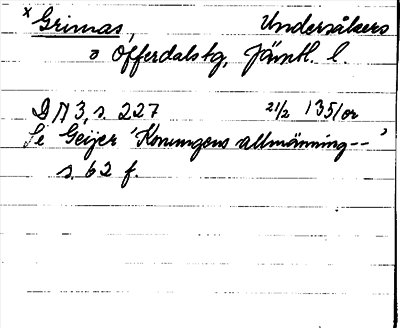 x Grimas, Undersåkers
o Offerdalstg, Jämtl. l.
DN 3, s. 227 21/2 1351 or
Se Geijer 'Konungens allmänning--'
s. 62 f.